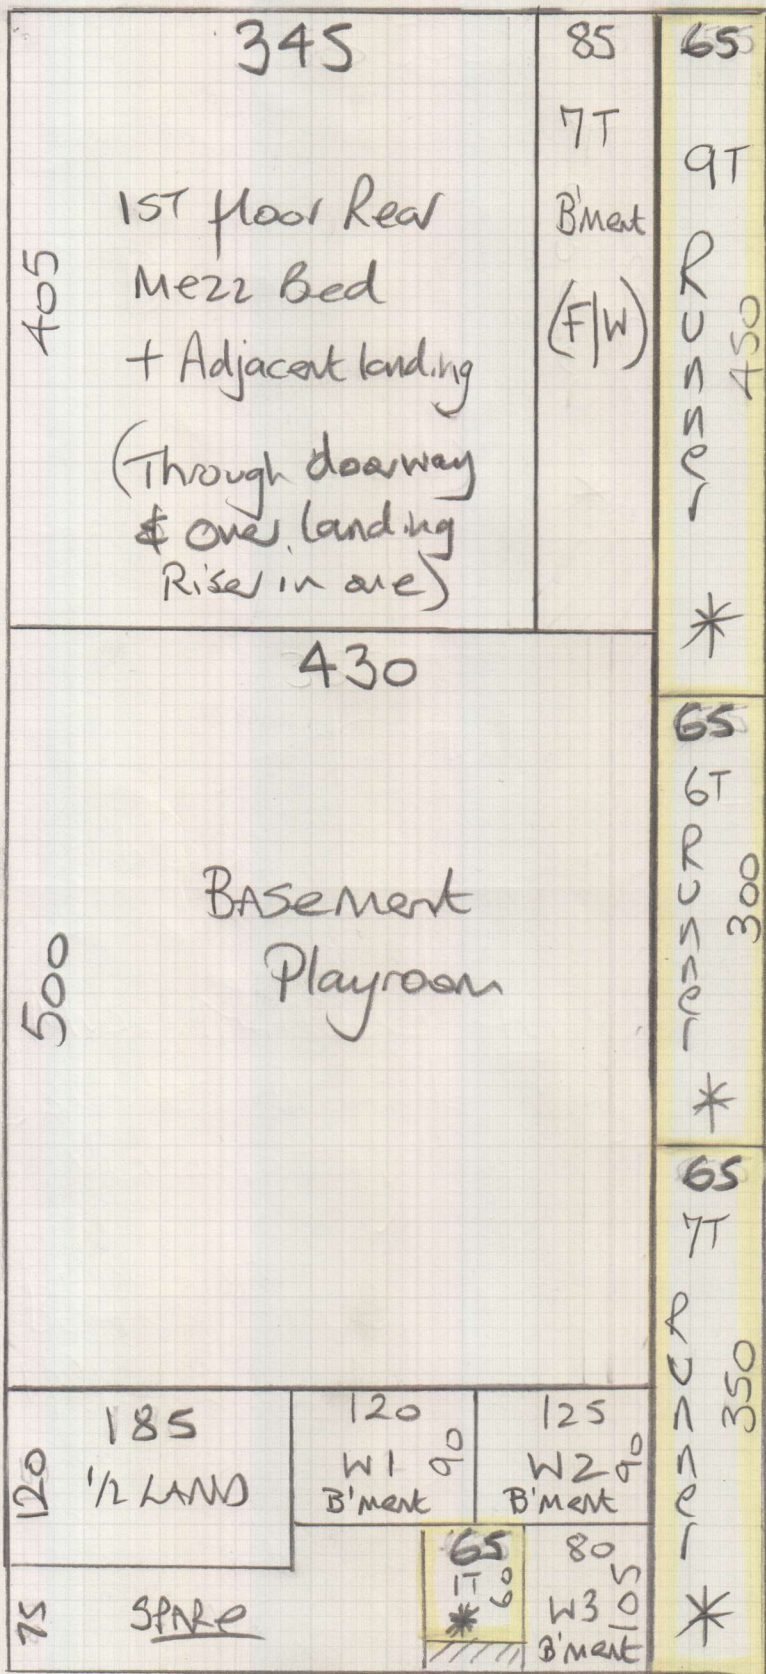 345
405
1ST floor Rear
Mezz Bed
+ Adjacent landing
(Through doorway
& over landing
Riser in one)
85
7T
B'ment
(F/W)
65
9T
Runner
450
*
430
500
Basement
Playroom
65
6T
Runner
300
*
65
7T
Runner
350
*
185
120
1/2 LAND
120
90
W1
B'ment
125
90
W2
B'ment
75
SPARE
65
1T
60
*
80
105
W3
B'ment